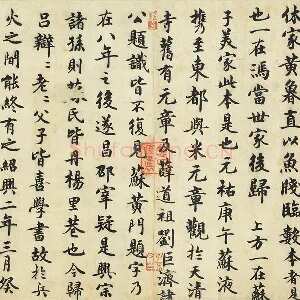 休家黃魯直以魚牋臨數本者是
也一在馮當世家後歸 上方一在蘇
子美家此本是也元祐庚午蘇液
攜至東都與米元章觀於天清
寺舊有元章及薛道祖劉巨濟諸
公題識皆不復見蘇黃門題字乃
在八年之後遂昌邵宰疑是興宗
諸孫則民皆丹楊里巷也今歸
呂辯〻老〻父子皆喜學書故於兵
火之間能終有之紹興二年三月癸